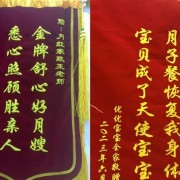 赠：月红家政王老师
金牌舒心好月嫂
悉心照顾胜亲人
月子餐恢复我身体
宝贝成了天使宝宝
优优宝宝全家敬赠
二〇二三年六月